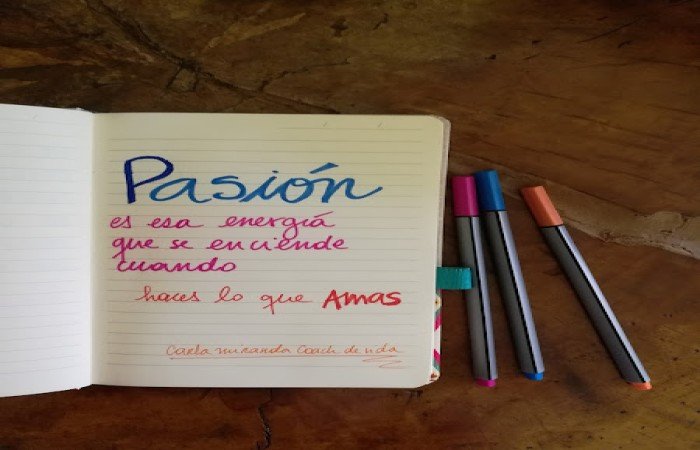 Pasión
es esa energía
que se enciende
cuando
haces lo que Amas
Carla Miranda Coach de vida